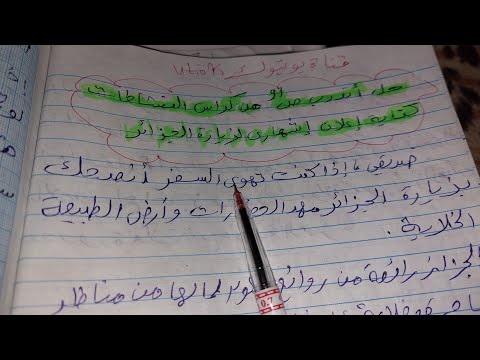 قناة يوتيوب
حل أتدرب ص من كراس النشاطات
كتابة إعلان إشهاري لزيارة الجزائر
صديقي إذا كنت تهوى السفر أنصحك
بزيارة الجزائر مهد الحضارات وأرض الطبيعة
الخلابة.
الجزائر رائعة من روائع لما لها من مناظر
0.7